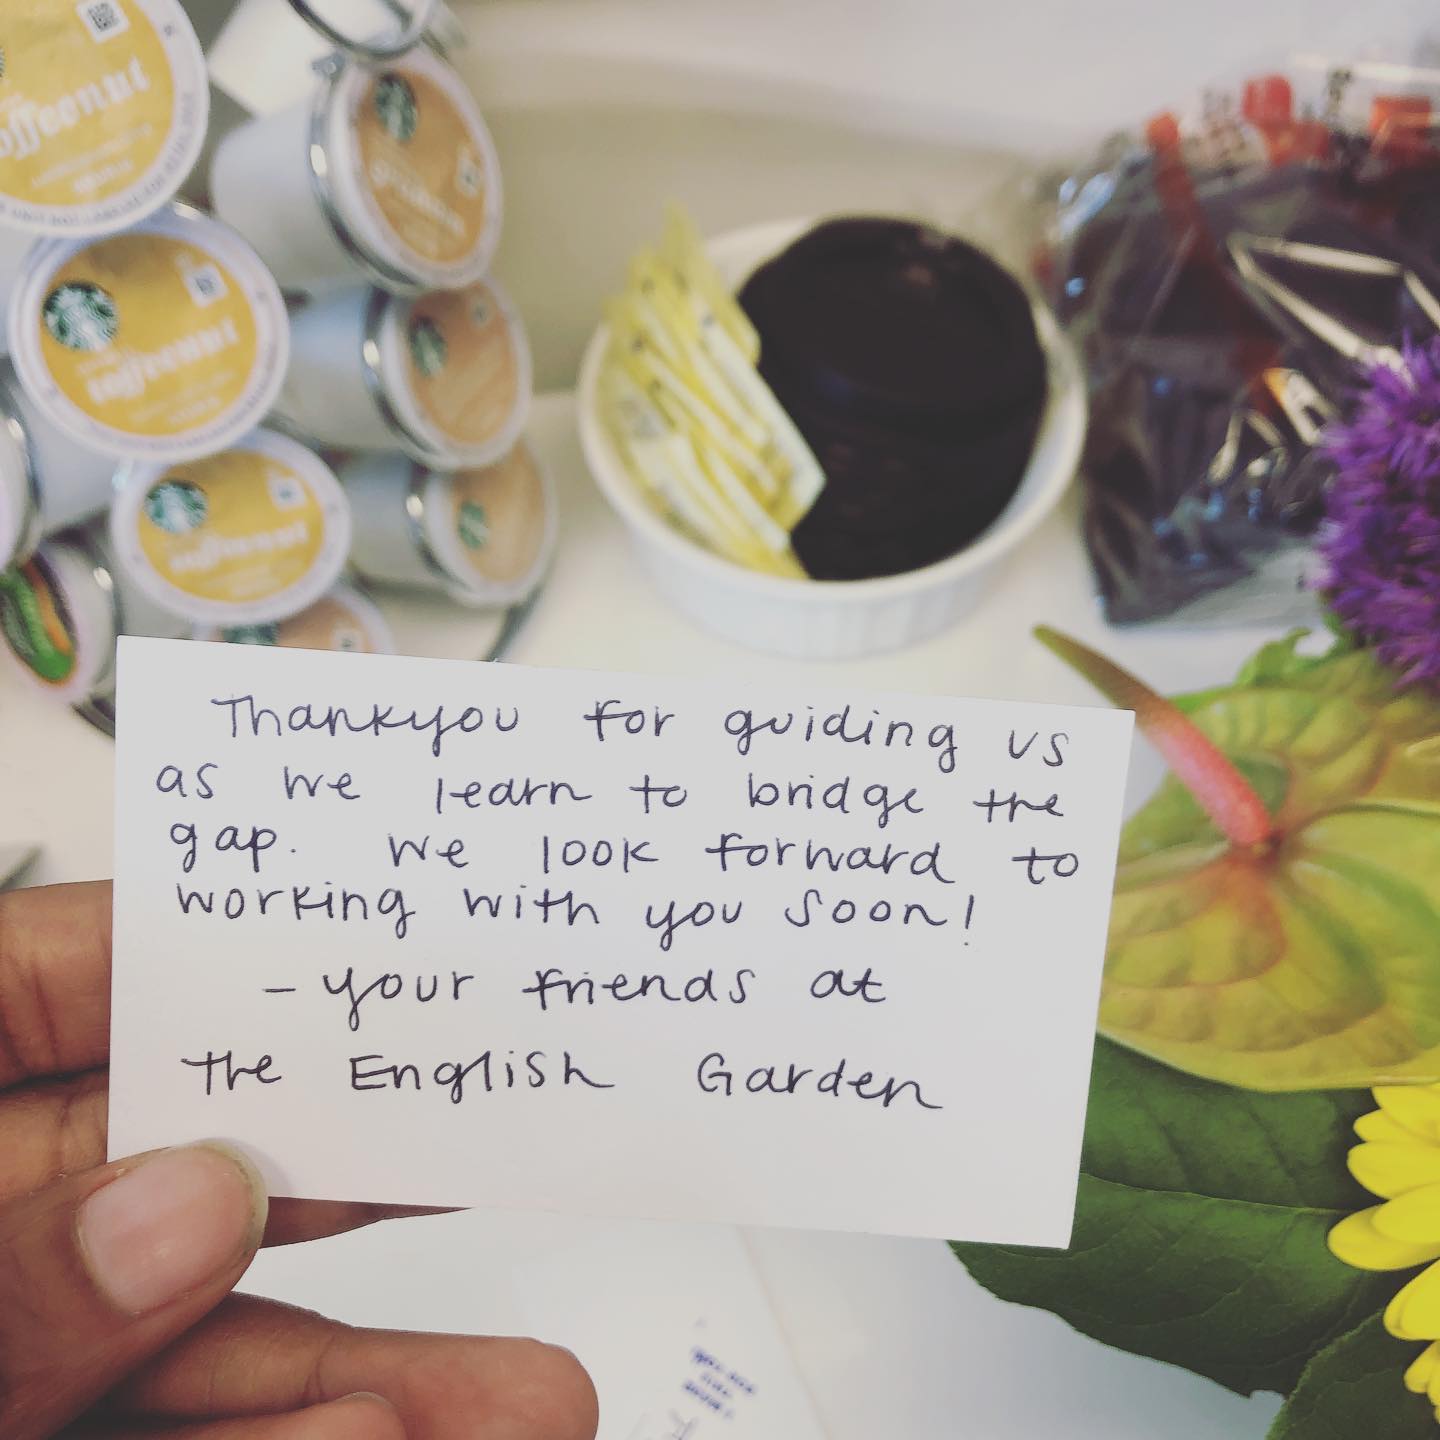 Thankyou for guiding us
as we learn to bridge the
gap. we look forward to
working with you soon!
- your friends at
the English Garden
toffeenut
toffeenut